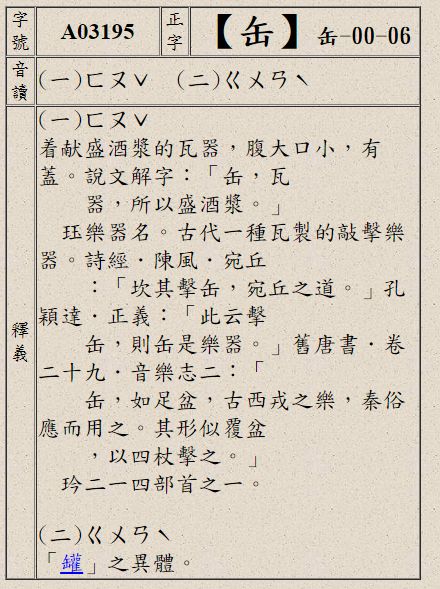 字號 A03195 正字 【缶】 缶-00-06
音讀 (一)ㄈㄡˇ (二)ㄍㄨㄢˋ
釋義
(一)ㄈㄡˇ
着献盛酒漿的瓦器，腹大口小，有
蓋。說文解字：「缶，瓦
器，所以盛酒漿。」
珏樂器名。古代一種瓦製的敲擊樂
器。詩經．陳風．宛丘
：「坎其擊缶，宛丘之道。」孔
穎達．正義：「此云擊
缶，則缶是樂器。」舊唐書．卷
二十九．音樂志二：「
缶，如足盆，古西戎之樂，秦俗
應而用之。其形似覆盆
，以四杖擊之。」
玲二一四部首之一。
(二)ㄍㄨㄢˋ
「罐」之異體。